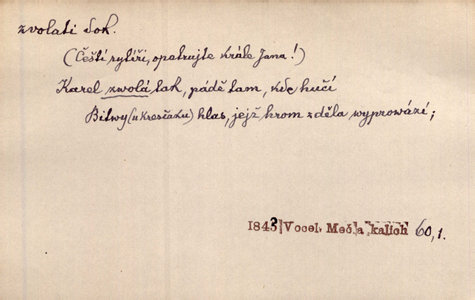 zvolati dok.
(Čeští rytíři, opatrujte krále Jana!)
Karel zwolá tak, pádě tam, kde hučí
Bitwy (u Kresčaku) hlas, jejž hrom z děla wyprowází;
1843 Vocel. Meč a kalich 60,1.